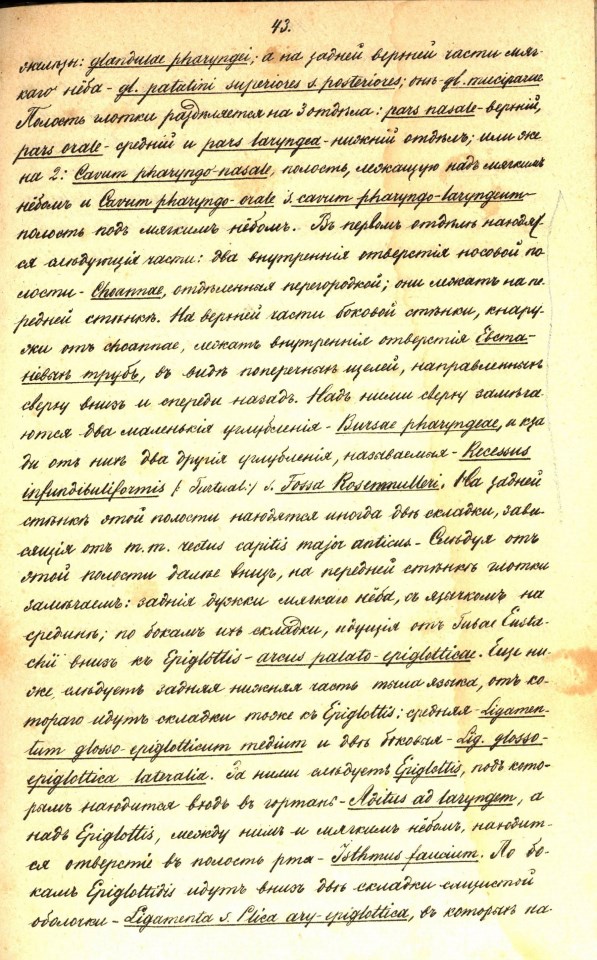 43.
железы: glandulae pharyngei; а на задней верхней части мяг-
каго нёба - gl. patalini superiores s. posteriores; онѣ - gl. muciparae
Полость глотки раздѣляется на 3 отдѣла: pars nasale - верхній,
pars orale - средній и pars laryngea - нижній отдѣлъ; или же
на 2: Cavum pharyngo-nasale, полость, лежащую надъ мягкимъ
нёбомъ и Cavum pharyngo-orale s. cavum pharyngo-laryngeum -
полость подъ мягкимъ нёбомъ. Въ первомъ отдѣлѣ находят-
ся слѣдующія части: два внутреннія отверстія носовой по-
лости - Choannae, отдѣленныя перегородкой; они лежатъ на пе-
редней стѣнкѣ. На верхней части боковой стѣнки, кнару-
жи отъ choannae, лежатъ внутреннія отверстія Евста-
хіевыхъ трубъ, въ видѣ поперечныхъ щелей, направленныхъ
сверху внизъ и спереди назадъ. Надъ ними сверху замѣча-
ются два маленькія углубленія - Bursae pharyngeae, и кза-
ди отъ нихъ два другія углубленія, называемыя - Recessus
infundibuliformis (: Turtual:) s. Fossa Rosenmulleri. На задней
стѣнкѣ этой полости находятся иногда двѣ складки, зави-
сящія отъ m.m. rectus capitis major anticus - Слѣдуя отъ
этой полости далѣе внизъ, на передней стѣнкѣ глотки
замѣчаемъ: заднія дужки мягкаго нёба, съ язычкомъ на
срединѣ; по бокамъ ихъ складки, идущія отъ Tubae Eusta-
chii внизъ къ Epiglottis - arcus palato-epiglotticae. Еще ни-
же слѣдуетъ задняя нижняя часть тыла языка, отъ ко-
тораго идутъ складки тоже къ Epiglottis: средняя - Ligamen-
tum glosso-epiglotticum medium и двѣ боковыя - Lig. glosso-
epiglottica lateralia. За ними слѣдуетъ Epiglottis, подъ кото-
рымъ находится входъ въ гортань - Aditus ad laryngem, а
надъ Epiglottis, между нимъ и мягкимъ нёбомъ, находит-
ся отверстіе въ полость рта - Isthmus faucium. По бо-
камъ Epiglottidis идутъ внизъ двѣ складки слизистой
оболочки - Ligamenta s. Plica ary-epiglottica, въ которыхъ на-